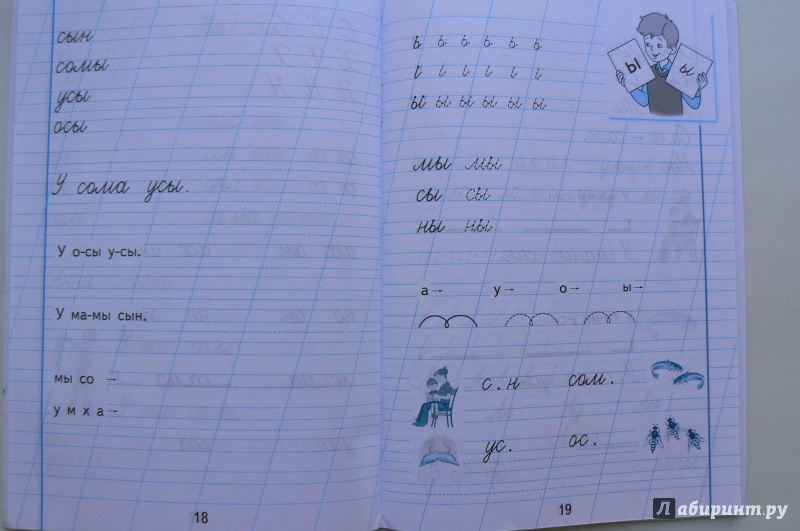 сын
сомы
усы
осы
У сома усы.
У о-сы у-сы.
У ма-мы сын.
мы со –
у м х а –
18
ь ь ь ь ь ь
ı ı ı ı ı ı
ы ы ы ы ы ы
ы ы
мы мы
сы сы
ны ны
а→ у→ о→ ы→
с.н сом.
ус. ос.
19
Лабиринт.ру